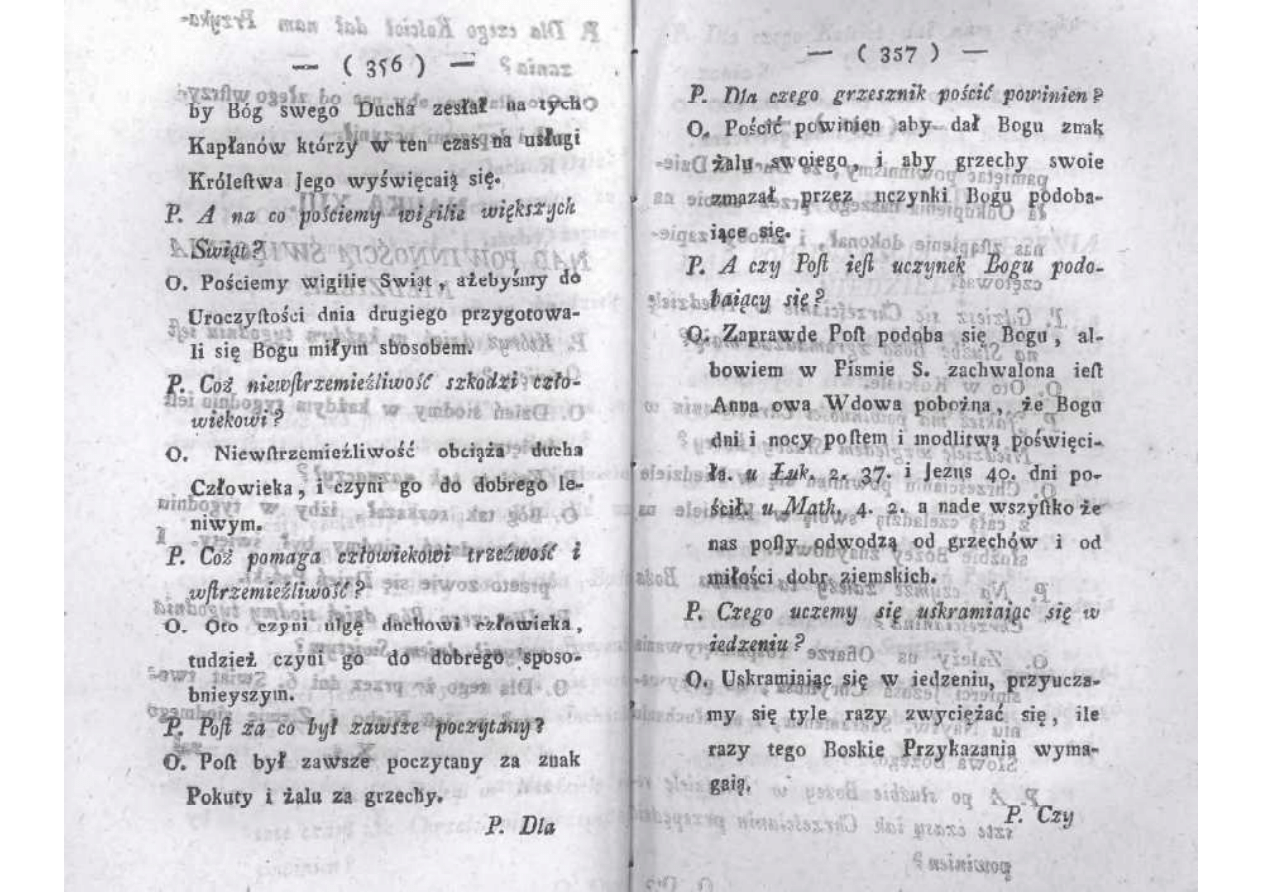 — ( 356 ) —
by Bóg swego Ducha zesłał na tych
Kapłanów którzy w ten czas na usługi
Króleſtwa Jego wyświęcaią się.
P. A na co pościemy wigilie większych
Swiąt?
O. Pościemy wigilie Swiąt, ażebyśmy do
Uroczyſtości dnia drugiego przygotowa-
li się Bogu miłym sbosobem.
P. Coż niewſtrzemieźliwość szkodzi czło-
wiekowi?
O. Niewſtrzemieźliwość obciąża ducha
Człowieka, i czyni go do dobrego le-
niwym.
P. Coż pomaga człowiekowi trzeźwość i
wſtrzemieźliwość?
O. Oto czyni ulgę duchowi człowieka,
tudzież czyni go do dobrego sposo-
bnieyszym.
P. Poſt za co był zawsze poczytany?
O. Poſt był zawsze poczytany za znak
Pokuty i żalu za grzechy.
P. Dla
— ( 357 ) —
P. Dla czego grzesznik pościć powinien?
O. Pościć powinien aby dał Bogu znak
żalu swoiego, i aby grzechy swoie
zmazał przez uczynki Bogu podoba-
iące się.
P. A czy Poſt ieſt uczynek Bogu podo-
baiący się?
O. Zaprawdę Poſt podoba się Bogu, al-
bowiem w Pismie S. zachwalona ieſt
Anna owa Wdowa pobożna, że Bogu
dni i nocy poſtem i modlitwą poświęci-
ła. u Łuk. 2. 37. i Jezus 40. dni po-
ścił. u Math. 4. 2. a nade wszyſtko że
nas poſty odwodzą od grzechów i od
miłości dobr ziemskich.
P. Czego uczemy się uskramiaiąc się w
iedzeniu?
O. Uskramiaiąc się w iedzeniu, przyucza-
my się tyle razy zwyciężać się, ile
razy tego Boskie Przykazania wyma-
gaią.
P. Czy